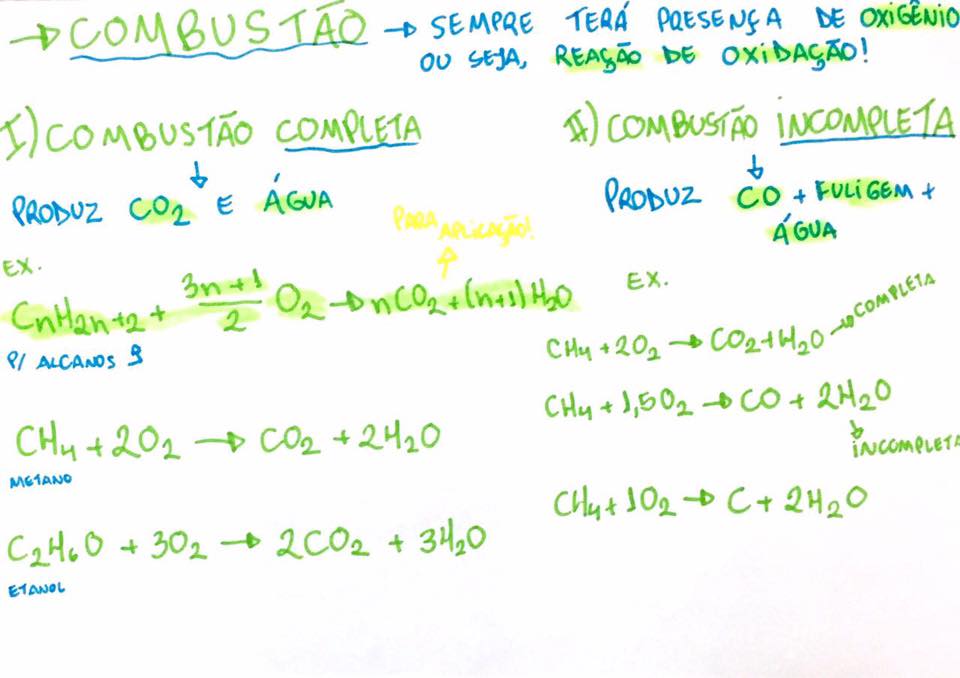 → COMBUSTÃO → SEMPRE TERÁ PRESENÇA DE OXIGÊNIO
OU SEJA, REAÇÃO DE OXIDAÇÃO!
I) COMBUSTÃO COMPLETA
↓
PRODUZ CO₂ E ÁGUA
PARA APLICAÇÃO!
↑
EX.
CnH2n+2 + 3n+1/2 O₂ → nCO₂ + (n+1) H₂O
P/ ALCANOS
CH₄ + 2O₂ → CO₂ + 2H₂O
METANO
C₂H₆O + 3O₂ → 2CO₂ + 3H₂O
ETANOL
II) COMBUSTÃO INCOMPLETA
↓
PRODUZ CO + FULIGEM +
ÁGUA
EX.
CH₄ + 2O₂ → CO₂ + H₂O → COMPLETA
CH₄ + 1,5O₂ → CO + 2H₂O
↓
INCOMPLETA
CH₄ + 1O₂ → C + 2H₂O